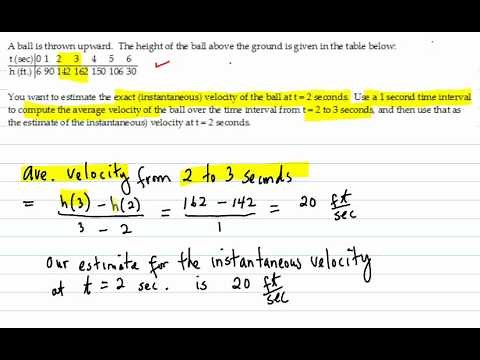 A ball is thrown upward. The height of the ball above the ground is given in the table below:
t (sec) 0 1 2 3 4 5 6
h (ft.) 6 90 142 162 150 106 30
You want to estimate the exact (instantaneous) velocity of the ball at t = 2 seconds. Use a 1 second time interval
to compute the average velocity of the ball over the time interval from t = 2 to 3 seconds, and then use that as
the estimate of the instantaneous) velocity at t = 2 seconds.
ave. velocity from 2 to 3 seconds
= h(3) - h(2) / 3 - 2 = 162 - 142 / 1 = 20 ft/sec
our estimate for the instantaneous velocity
at t = 2 sec. is 20 ft/sec